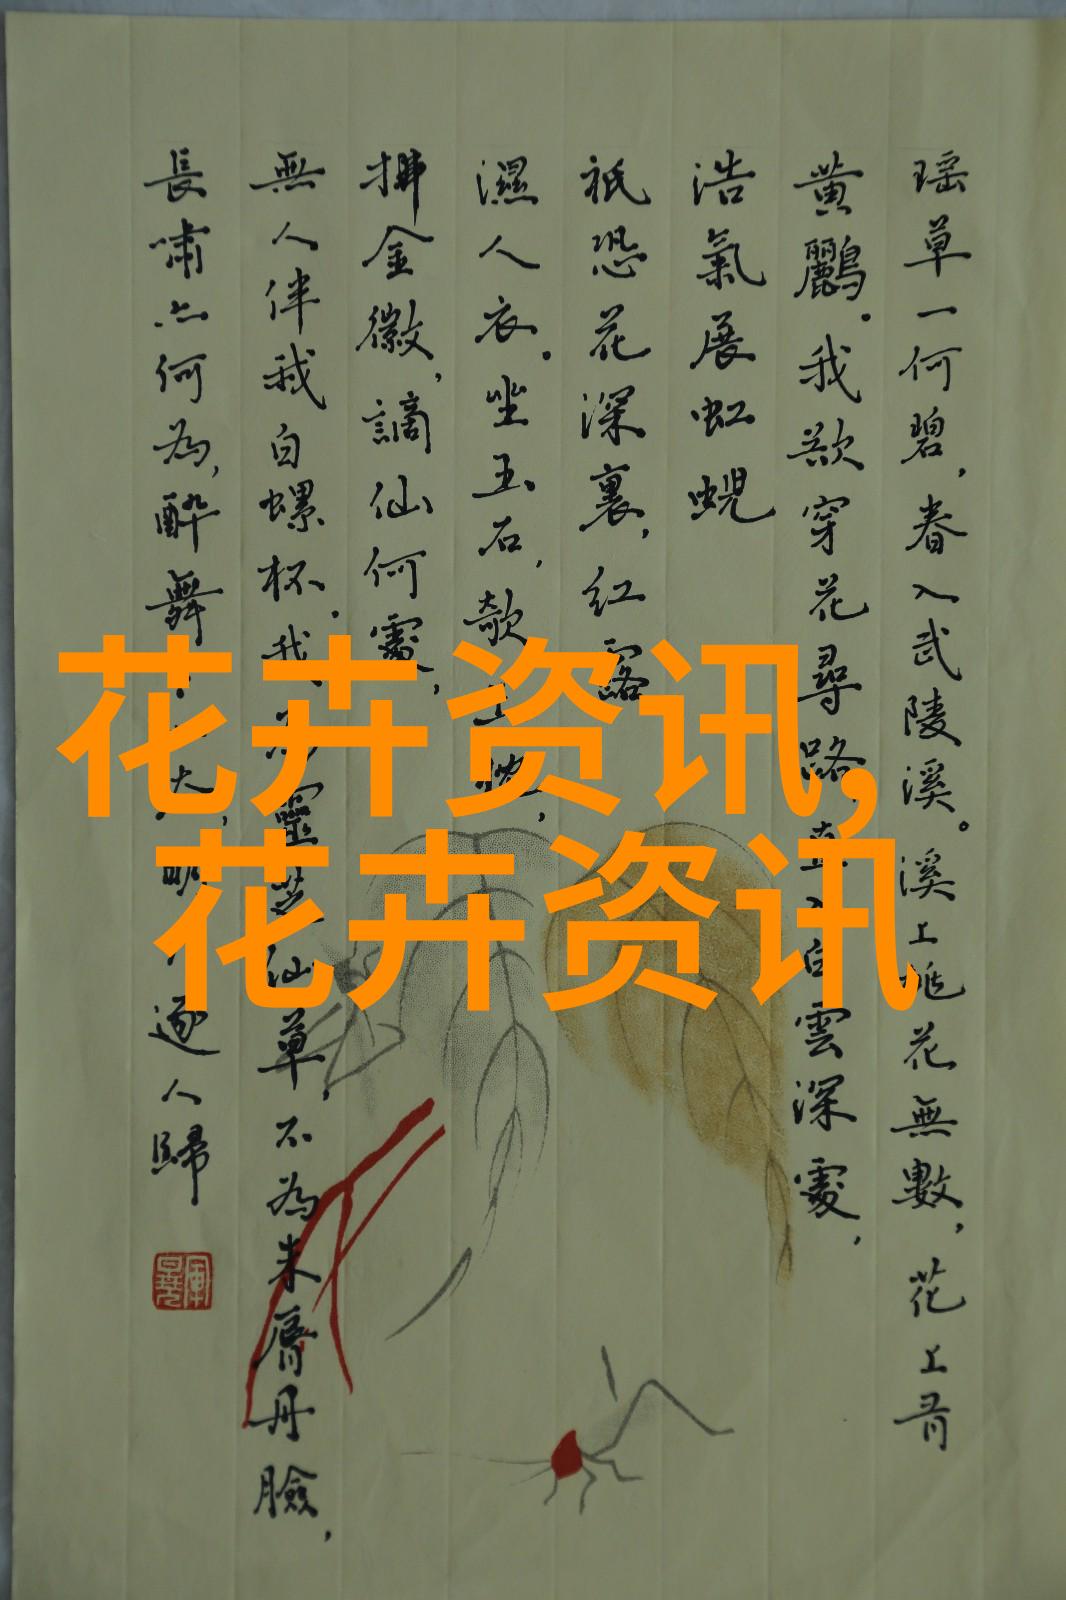 瑶草一何碧，春入武陵溪。溪上桃花無數，花上有
黄鸝。我欲穿花尋路，直入白雲深處，
浩氣展虹蜺
祇恐花深裏，紅露
濕人衣。坐玉石，欹玉枕，
拂金徽，謫仙何處，
無人伴我白螺杯。我為靈芝仙草，不為朱脣丹臉，
長嘯亦何為，醉舞 明 逐人歸
花卉资讯，
花卉资讯